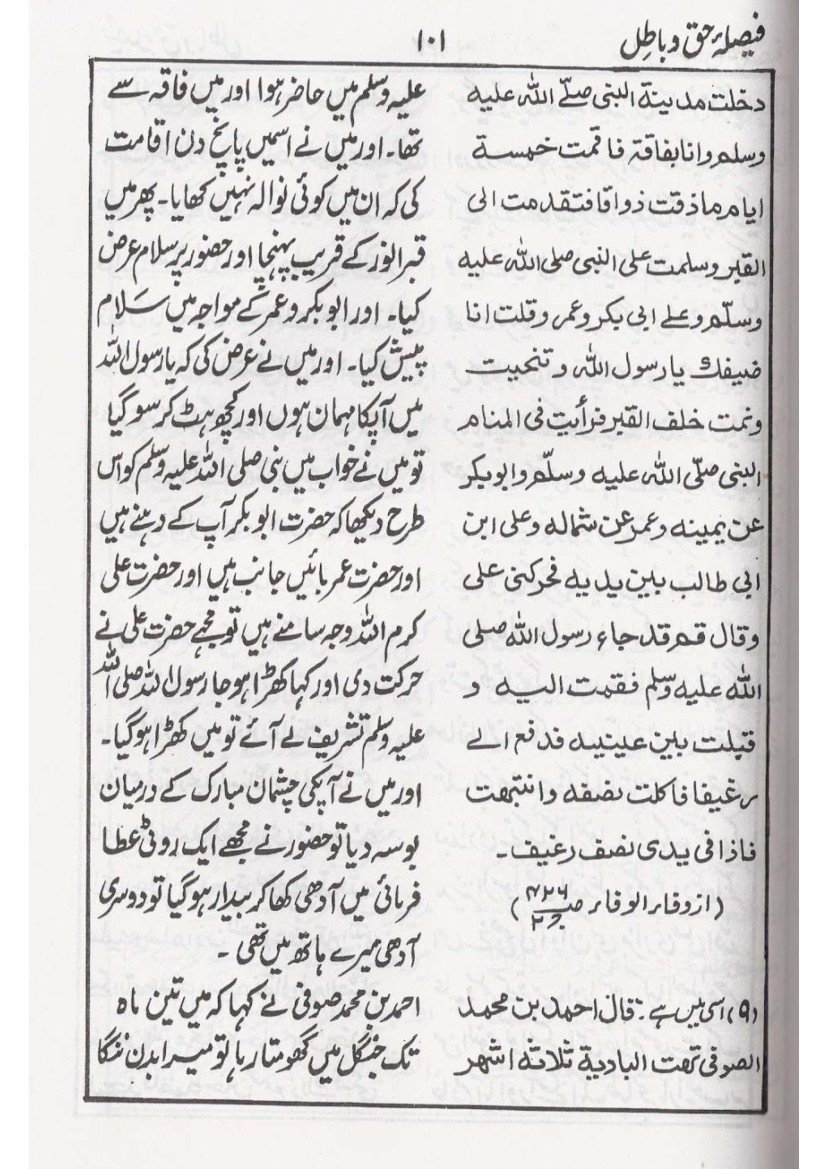 فیصلۂ حق و باطل
۱۰۱
دخلت مدینة البنی صلّے الله علیه
وسلم وانا بفاقة فاقمت خمسة
ایام ماذقت ذواقا فتقدمت الی
القبر وسلمت علی النبی صلی الله علیه
وسلّم وعلے ابی بکر وعمر وقلت انا
ضیفك یا رسول الله وتنحیت
ونمت خلف القبر فرأیت فی المنام
البنی صلّی الله علیه وسلّم وابو بکر
عن یمینه وعمر عن شماله وعلی ابن
ابی طالب بین یدیه فحرکنی علی
وقال قم قد جاء رسول الله صلی
الله علیه وسلم فقمت الیه و
قبلت بین عینیه فدفع الے
رغیفا فاکلت نصفه وانتبهت
فاذا فی یدی نصف رغیف۔
(از وفاء الوفاء صـ ۴۲۶ ج ۲)
(۹) اسی میں ہے: قال احمد بن محمد
الصوفی تهت البادیة ثلاثه اشهر
علیہ وسلم میں حاضر ہوا اور میں فاقہ سے
تھا۔ اور میں نے اسمیں پانچ دن اقامت
کی کہ ان میں کوئی نوالہ نہیں کھایا۔ پھر میں
قبر انور کے قریب پہنچا اور حضور پر سلام عرض
کیا۔ اور ابو بکر و عمر کے مواجہ میں سَلام
پیش کیا۔ اور میں نے عرض کی کہ یا رسول اللہ
میں آپکا مہمان ہوں اور کچھ ہٹ کر سو گیا
تو میں نے خواب میں بنی صلی اللہ علیہ وسلم کو اس
طرح دیکھا کہ حضرت ابو بکر آپ کے دہنے ہیں
اور حضرت عمر بائیں جانب ہیں اور حضرت علی
کرم اللہ وجہ سامنے ہیں تو مجھے حضرت علی نے
حرکت دی اور کہا کھڑا ہو جا رسول اللہ صلی اللہ
علیہ وسلم تشریف لے آئے تو میں کھڑا ہو گیا۔
اور میں نے آپکی چشمان مبارک کے درمیان
بوسہ دیا تو حضور نے مجھے ایک روٹی عطا
فرمائی میں آدھی کھا کر بیدار ہو گیا تو دوسری
آدھی میرے ہاتھ میں تھی۔
احمد بن محمد صوفی نے کہا کہ میں تین ماہ
تک جنگل میں گھومتا رہا تو میرا بدن ننگا